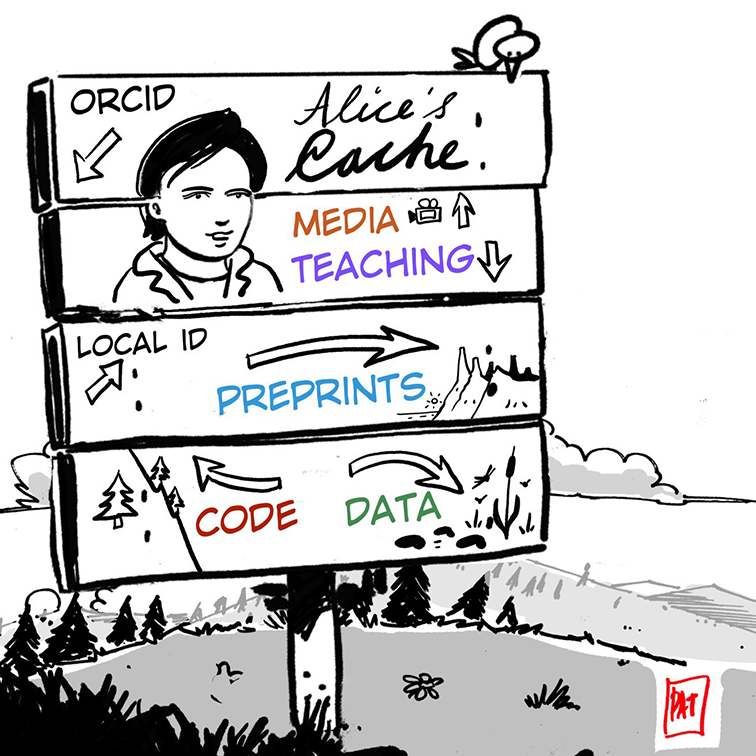 ORCID
Alice's
Cache
MEDIA
TEACHING
LOCAL ID
PREPRINTS
CODE
DATA
PAT